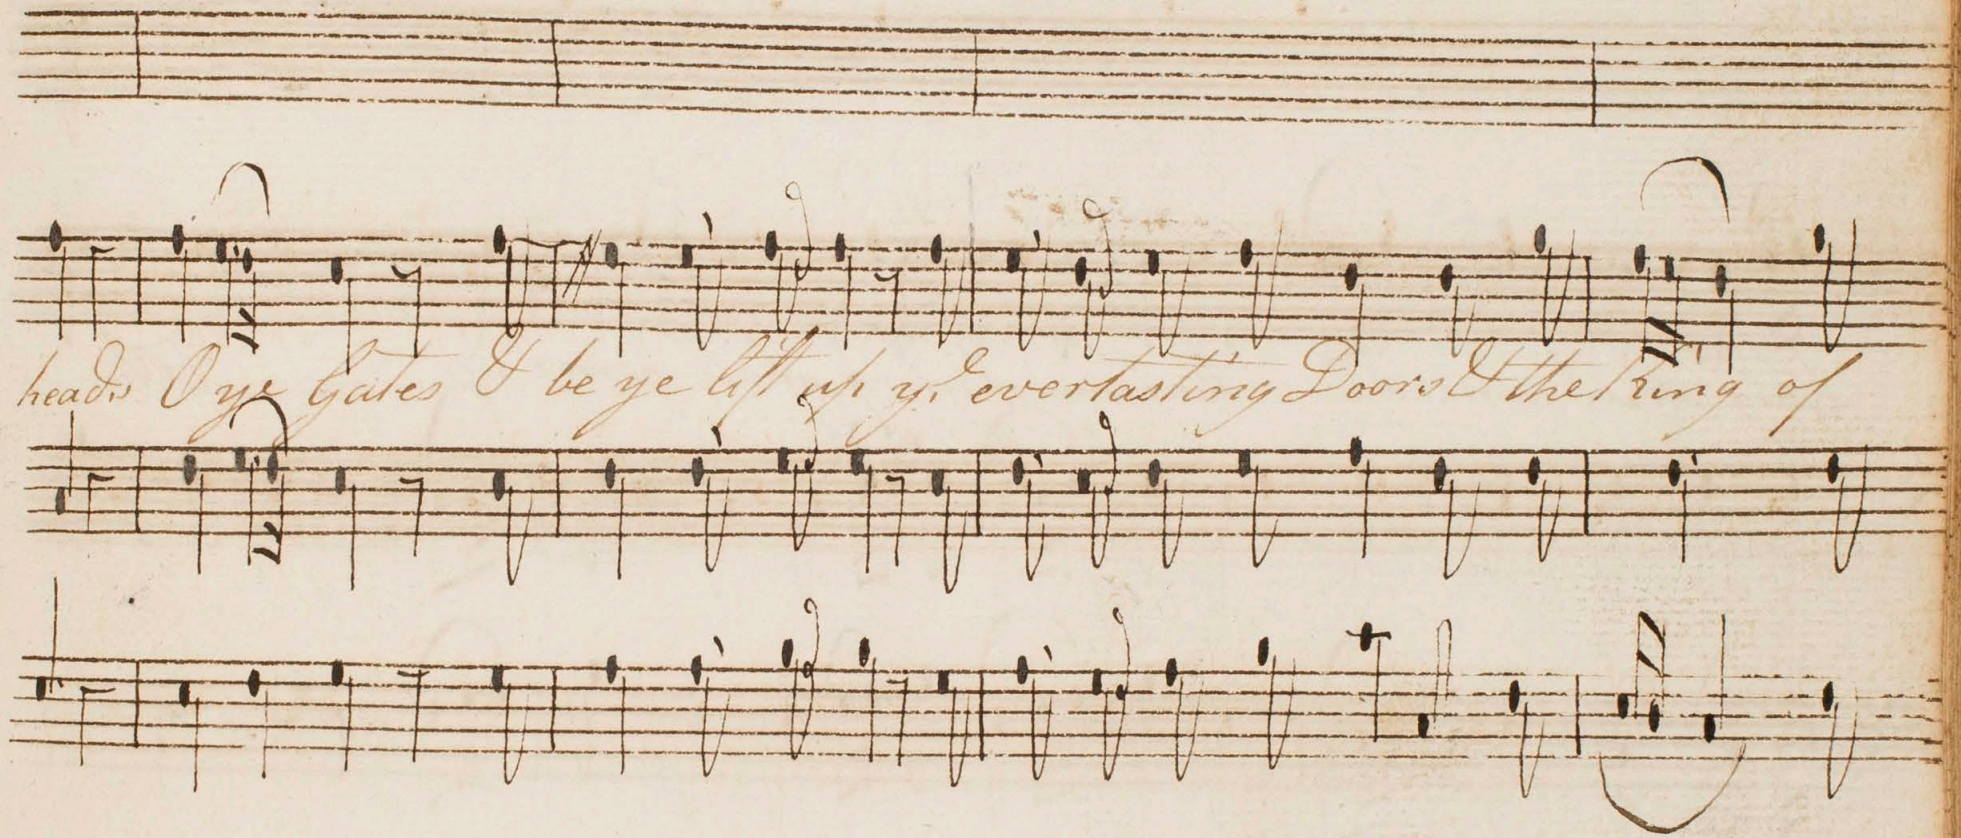 heads O ye Gates & be ye lift up ye everlasting Doors & the King of